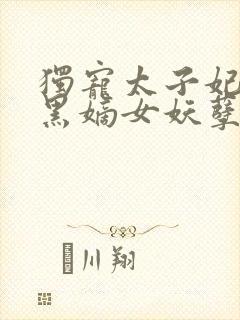 獨寵太子妃
黑嫡女妖孽
川翔